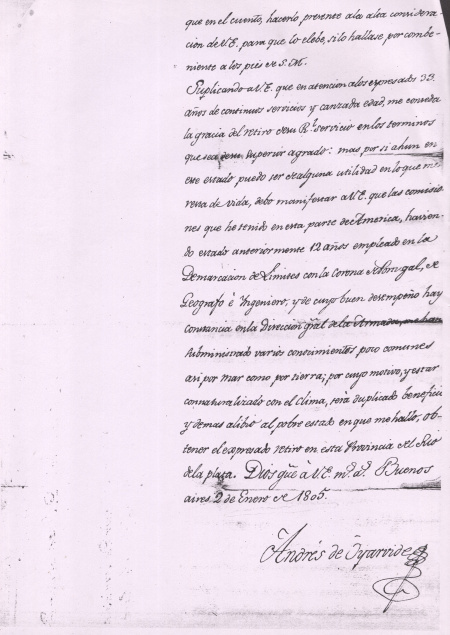 que en el cuento, hacerlo presente a la alta considera-
cion de V.E. para que lo elebe, si lo hallase por combe-
niente a los pies de S.M.
Suplicando a V.E. que en atencion a los expresados 39
años de continuos servicios y canzada edad, me conceda
la gracia del retiro de su Rl. servicio en los terminos
que sea de su superior agrado: mas por si ahun en
este estado puedo ser de alguna utilidad en lo que me
resta de vida, debo manifestar a V.E. que las comisio-
nes que he tenido en esta parte de America, havien-
do estado anteriormente 12 años empleado en la
Demarcacion de Limites con la Corona de Portugal, de
Geografo è Ingeniero, y de cuyo buen desempeño hay
constancia en la direccion gral de la Armada, me han
subministrado varios conocimientos poco comunes
asi por mar como por tierra; por cuyo motivo, y estar
connaturalizado con el clima, serà duplicado beneficio
y demas alibio al pobre estado en que me hallo, ob-
tener el expresado retiro en esta Provincia del Rio
de la plata. Dios gue a V.E. ms. as. Buenos
aires 2 de Enero de 1805.
Andrés de Oyarvide